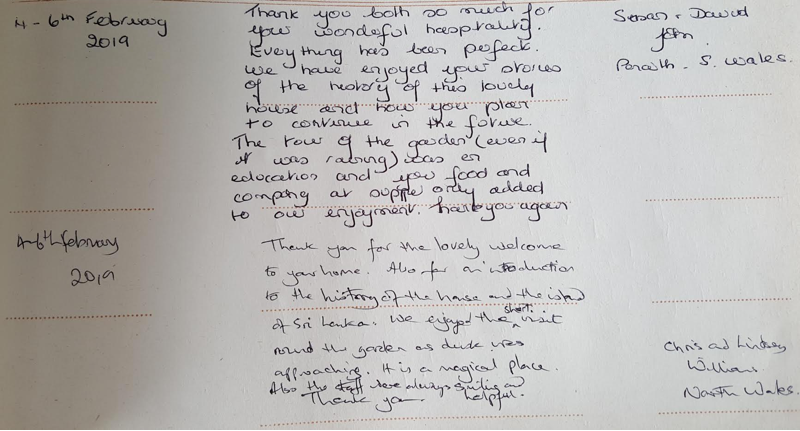 4 - 6th February
2019
Thank you both so much for
your wonderful hospitality.
Everything has been perfect.
We have enjoyed your stories
of the history of this lovely
house and how you plan
to continue in the future.
The tour of the garden (even if
it was raining) was an
education and your food and
company at supper only added
to our enjoyment. Thank you again
Susan & David
S. Wales.
4-6th February
2019
Thank you for the lovely welcome
to your home. Also for an introduction
to the history of the house and the island
of Sri Lanka. We enjoyed the short visit
round the garden as dusk was
approaching. It is a magical place.
Also the staff were always smiling and
Thank you. helpful.
Chris and Lindsey
Williams
North Wales.